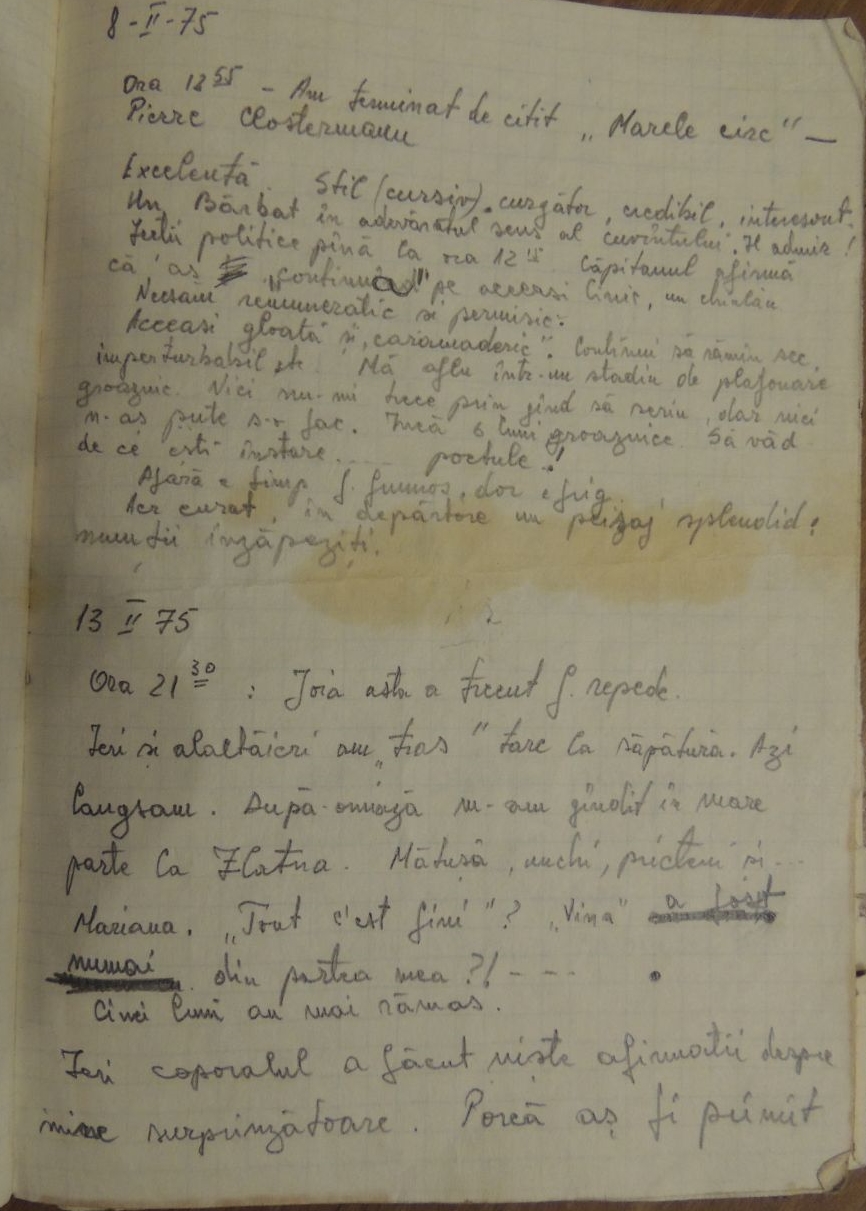 8-II-75
Ora 13 55 – Am terminat de citit „Marele circ” –
Pierre Clostermann
Excelentă. Stil (cursiv). curgător, credibil, interesant.
Un Bărbat în adevăratul sens al cuvîntului. Îl admir!
politice pînă la ora 12 Căpitanul afirmă
că aș „continua” pe aceeași linie, un
Nu sînt și permisie.
Aceeași gloată și „caramaderie”. Continui să rămîn sec,
imperturbabil etc. Mă aflu într-un stadiu de plafonare
groaznic. Nici nu-mi trece prin gînd să scriu, dar nici
n-aș pute s-o fac. Încă 6 luni groaznice. Să văd
de ce ești înstare..... poetule!
Afară e timp f. frumos, dar e frig.
Aer curat, în depărtare un peizaj splendid:
munții înzăpeziți.
13 II 75
Ora 21 30 : Joia asta a trecut f. repede.
Ieri și alaltăieri am „tras” tare la săpătură. Azi
langsam. După-amiază m-am gîndit în mare
parte la Zlatna. Mătușă, unchi, prieteni și...
Mariana. „Tout c'est fini”? „Vina” a fost
numai din partea mea?! - - - .
Cinci luni au mai rămas.
Ieri caporalul a făcut niște afirmații despre
mine surprinzătoare. Parcă aș fi primit